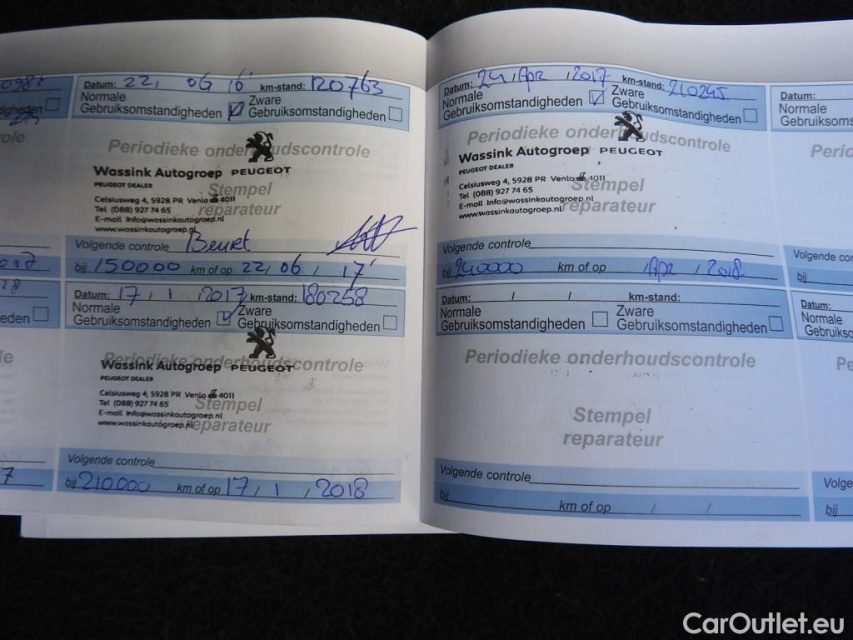 Datum: 22, 06 16 km-stand: 120763
Normale Gebruiksomstandigheden Zware Gebruiksomstandigheden
Periodieke onderhoudscontrole
Wassink Autogroep PEUGEOT
PEUGEOT DEALER
Stempel
Celsiusweg 4, 5928 PR Venlo 4011
Tel (088) 927 74 65
reparateur
E-mail info@wassinkautogroep.nl
www.wassinkautogroep.nl
Volgende controle Beurt
bij 150000 km of op 22/06/17
Datum: 17/1/2017 km-stand: 180268
Normale Gebruiksomstandigheden Zware Gebruiksomstandigheden
Periodieke onderhoudscontrole
Wassink Autogroep PEUGEOT
PEUGEOT DEALER
Celsiusweg 4, 5928 PR Venlo 4011
Tel (088) 927 74 65
Stempel
E-mail info@wassinkautogroep.nl
www.wassinkautogroep.nl
reparateur
Volgende controle
bij 210000 km of op 17/1/2018
Datum: 24/Apr/2017 km-stand: 210245
Normale Gebruiksomstandigheden Zware Gebruiksomstandigheden
Periodieke onderhoudscontrole
Wassink Autogroep PEUGEOT
PEUGEOT DEALER
Celsiusweg 4, 5928 PR Venlo 4011
Stempel
Tel (088) 927 74 65
E-mail info@wassinkautogroep.nl
www.wassinkautogroep.nl
reparateur
Volgende controle
bij 240000 km of op Apr/2018
Datum: / / km-stand:
Normale Gebruiksomstandigheden Zware Gebruiksomstandigheden
Periodieke onderhoudscontrole
Stempel
reparateur
Volgende controle
bij km of op / /
Datum:
Normale
Gebruiksoms
Perio
Volgende co
bij
Datum:
Normale
Gebruikso
Pe
Volge
bij
CarOutlet.eu